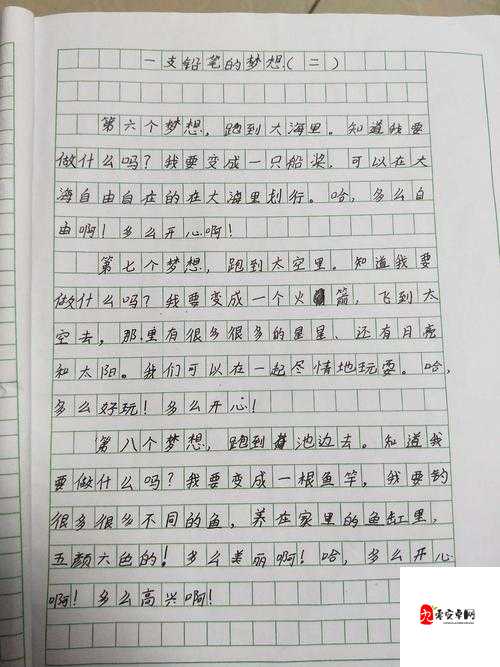 一支铅笔的梦想(二)
第六个梦想,跑到大海里。知道我要
做什么吗?我要变成一只船桨,可以在大
海自由自在的在大海里划行。哈,多么自
由啊!多么开心啊!
第七个梦想,跑到太空里。知道我要
做什么吗?我要变成一个火箭,飞到太
空去,那里有很多很多的星星、还有月亮
和太阳。我们可以在一起尽情地玩耍。哈,
多么好玩!多么开心!
第八个梦想,跑到池边去。知道我
要做什么吗?我要变成一根鱼竿,我要钓
很多很多不同的鱼,养在家里的鱼缸里,
五颜六色的!多么美丽啊!哈,多么开心
啊!多么高兴啊!
零安卓网